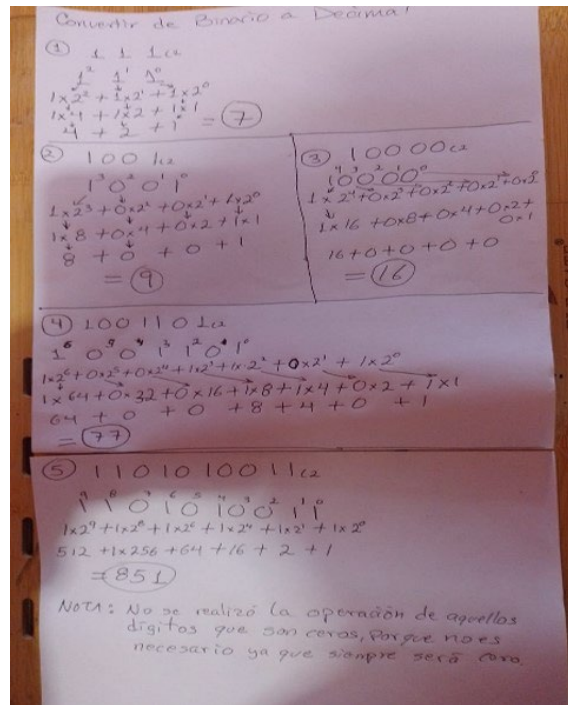 Convertir de Binario a Decimal
① 1 1 1₍₂
1² 1¹ 1⁰
1x2² + 1x2¹ + 1x2⁰
1x4 + 1x2 + 1x1
4 + 2 + 1 = 7
② 1001₍₂
1³ 0² 0¹ 1⁰
1x2³ + 0x2² + 0x2¹ + 1x2⁰
1x8 + 0x4 + 0x2 + 1x1
8 + 0 + 0 + 1
= 9
③ 10000₍₂
1⁴ 0³ 0² 0¹ 0⁰
1x2⁴ + 0x2³ + 0x2² + 0x2¹ + 0x2⁰
1x16 + 0x8 + 0x4 + 0x2 +
0x1
16 + 0 + 0 + 0 + 0
= 16
④ 1001101₍₂
1⁶ 0⁵ 0⁴ 1³ 1² 0¹ 1⁰
1x2⁶ + 0x2⁵ + 0x2⁴ + 1x2³ + 1x2² + 0x2¹ + 1x2⁰
1x64 + 0x32 + 0x16 + 1x8 + 1x4 + 0x2 + 1x1
64 + 0 + 0 + 8 + 4 + 0 + 1
= 77
⑤ 1101010011₍₂
1⁹ 1⁸ 0⁷ 1⁶ 0⁵ 1⁴ 0³ 0² 1¹ 1⁰
1x2⁹ + 1x2⁸ + 1x2⁶ + 1x2⁴ + 1x2¹ + 1x2⁰
512 + 1x256 + 64 + 16 + 2 + 1
= 851
NOTA: No se realizó la operación de aquellos
dígitos que son ceros, porque no es
necesario ya que siempre será cero.